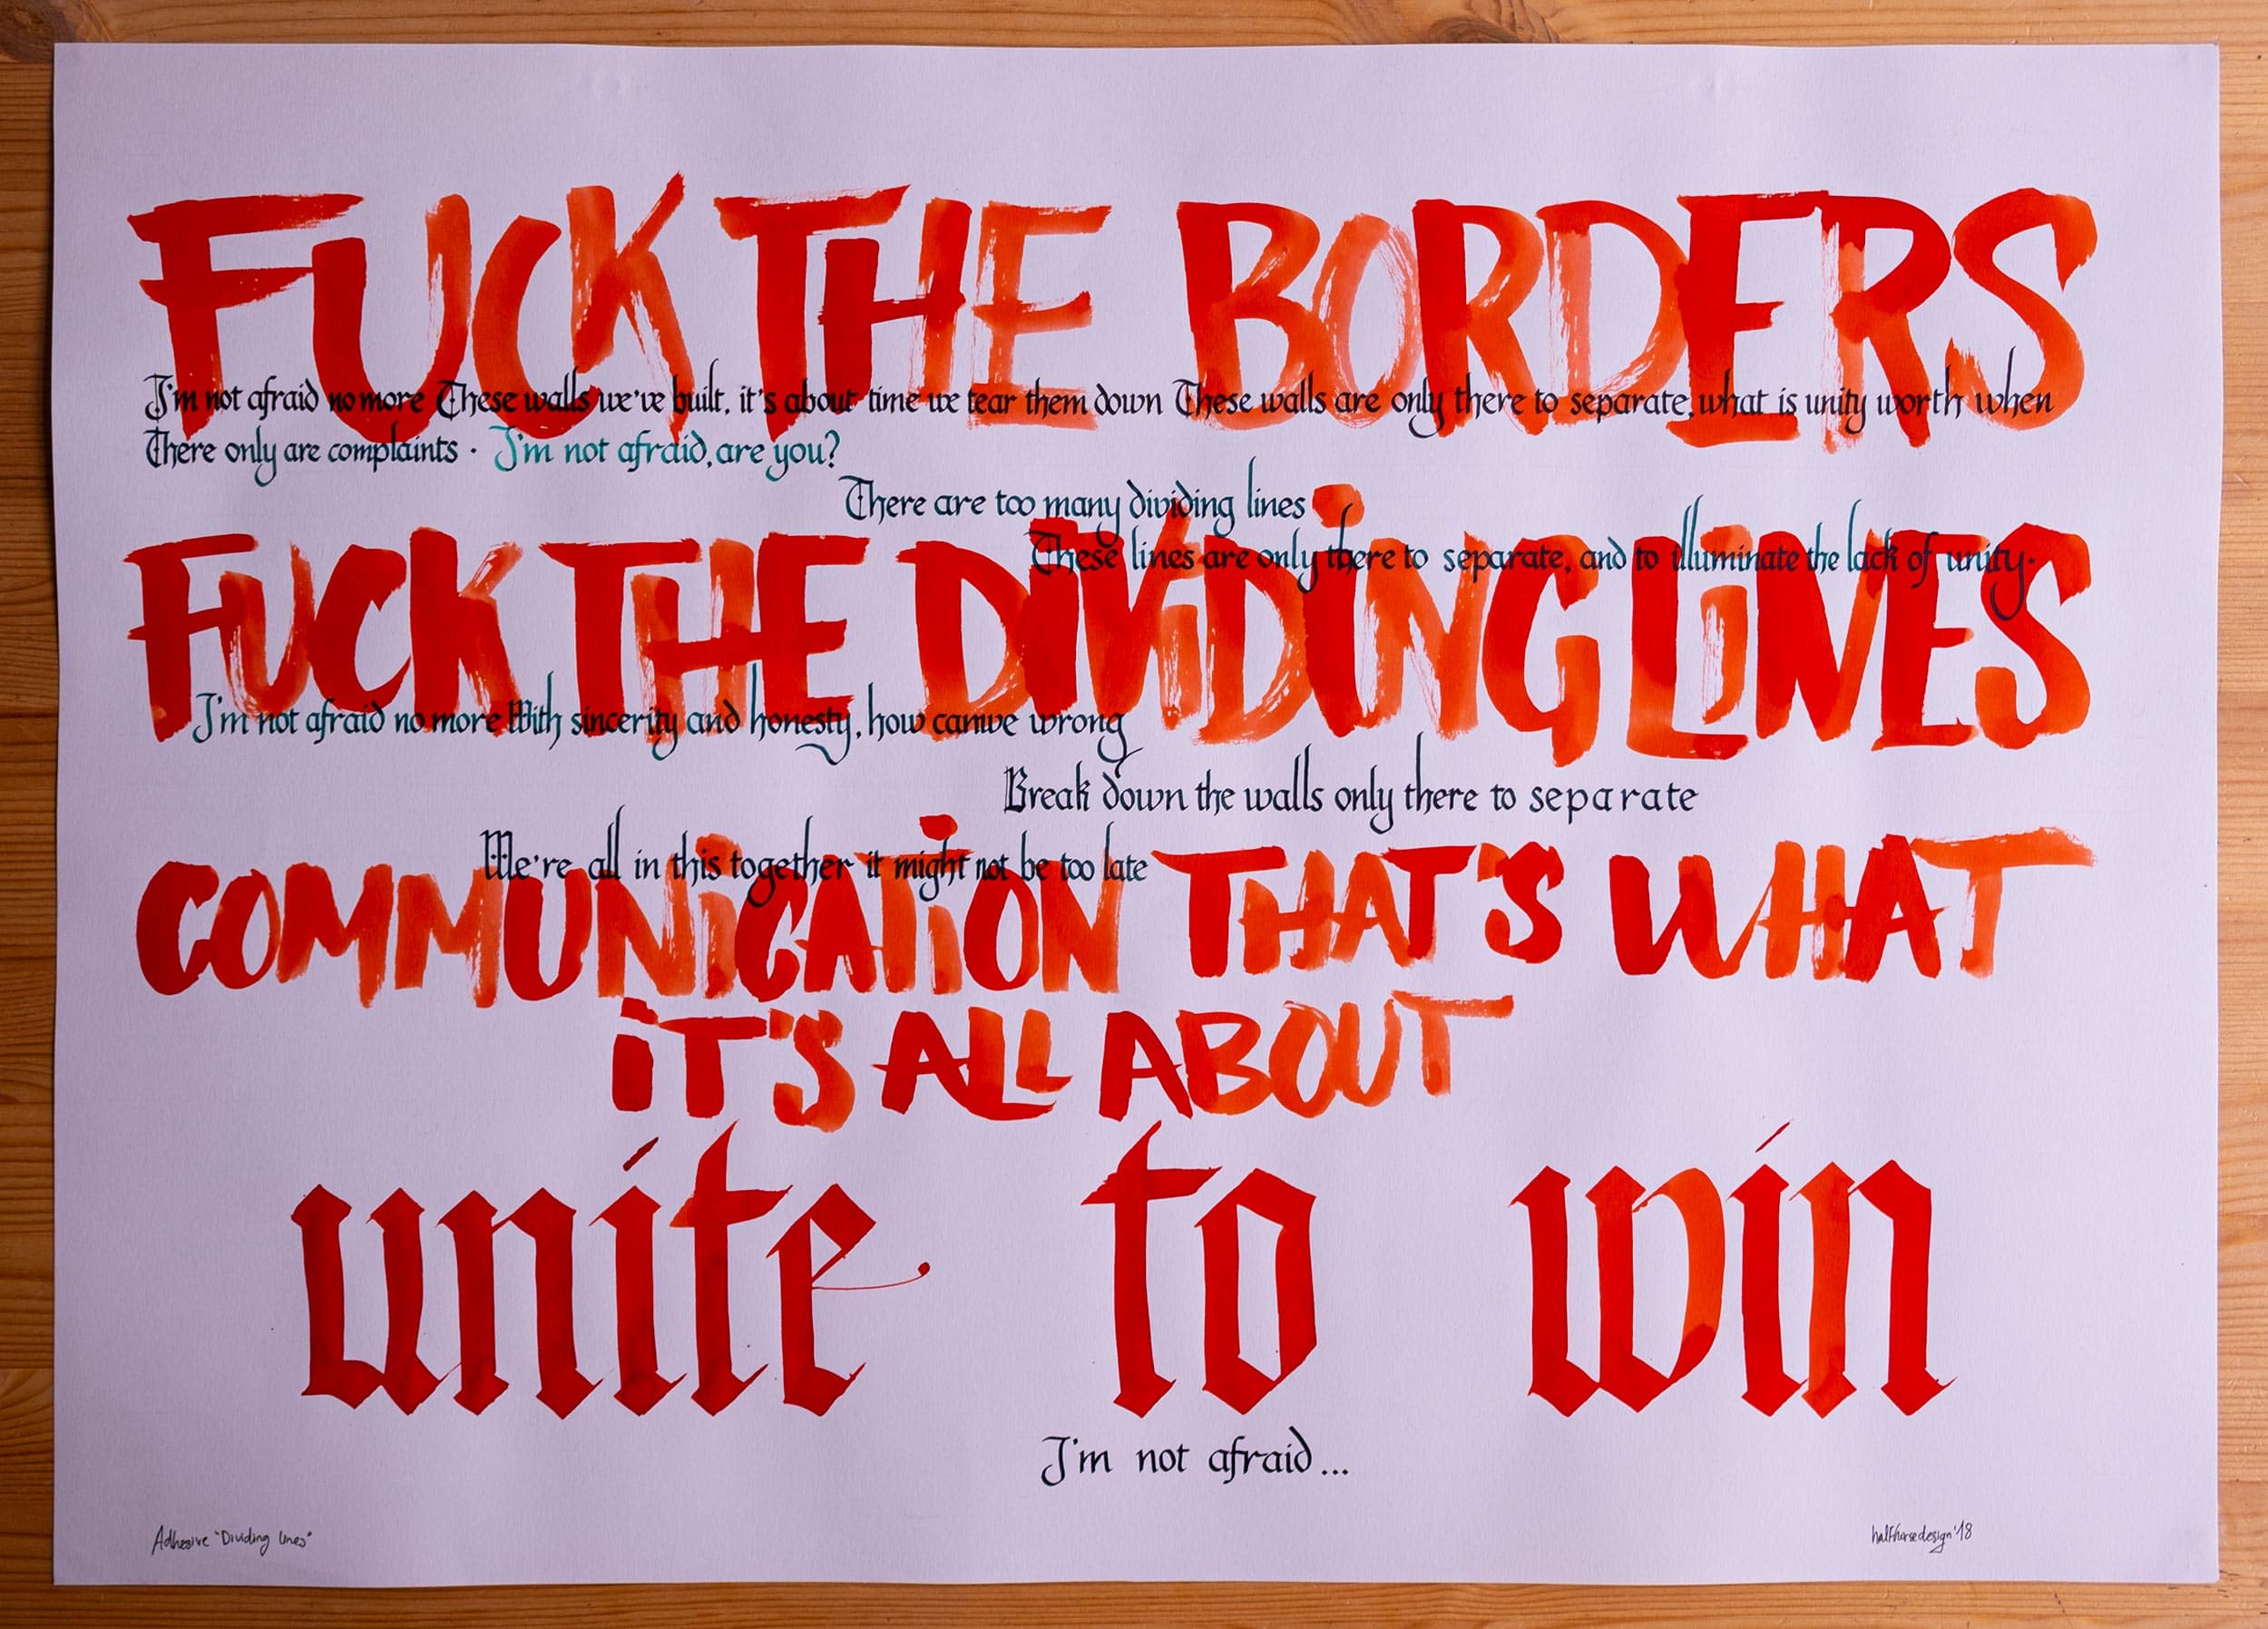 FUCK THE BORDERS
I'm not afraid no more These walls we've built, it's about time we tear them down These walls are only there to separate, what is unity worth when
There only are complaints · I'm not afraid, are you?
There are too many dividing lines
These lines are only there to separate, and to illuminate the lack of unity.
FUCK THE DiViDiNG LiNES
I'm not afraid no more With sincerity and honesty, how can we wrong
Break down the walls only there to separate
We're all in this together it might not be too late
COMMUNiCATiON THAT'S WHAT
iT'S ALL ABOUT
unite to win
I'm not afraid...
Adhesive "Dividing lines"
halfhorsedesign '18